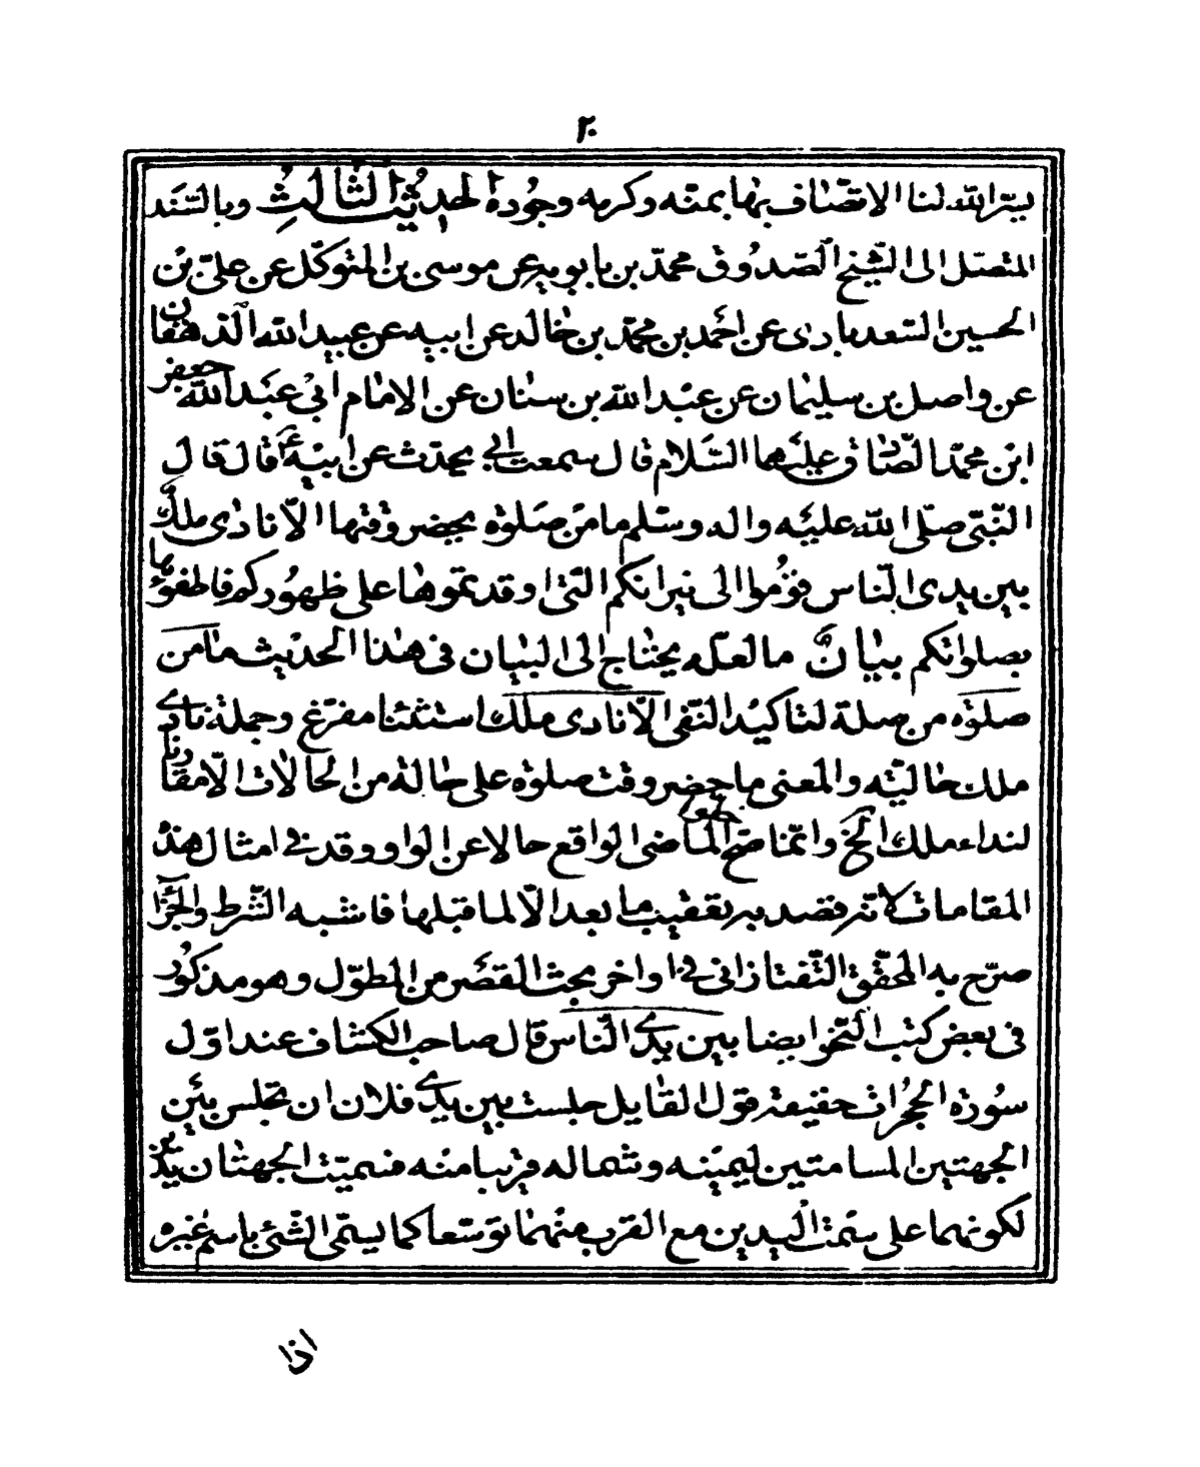 ٢٠
يسّر الله لنا الاتّصاف بها بمنّه وكرمه وجُوده الحدِيْث الثّالِثُ وبالسّند
المتّصل الى الشّيخ الصّدُوق محمّد بن بابويه عن موسى بن المتوكّل عن علىّ بن
الحسين السّعدبادى عن احمد بن محمّد بن خالد عن ابيه عن عبيد الله الدّهقان
عن واصل بن سليمان عن عبد الله بن سنان عن الامام ابى عبد الله جعفر
ابن محمّد الصّادق عليهما السّلام قال سمعت ابى يحدّث عن ابيه ع قال قال
النّبىّ صلّى الله عليه واله وسلم ما من صلوة يحضر وقتها الّا نادى ملك
بين يدى النّاس قوُموا الى نيرانكم الّتى اوقدتموها على ظهوُركم فاطفؤها
بصلواتكم بيان ما لعلّه يحتاج الى البيان فى هذا الحديث ما من
صلوة من صلة لتاكيد النّفى الّا نادى ملك استثنا مفرّغ وجملة نادى
ملك حاليّة والمعنى ما حضر وقت صلوة على حالة من الحالات الّا مقارنا
لنداء ملك الخ وانّما صحّ وقوع الماضى الواقع حالا عن الواو وقد فى امثال هذه
المقامات لانّه قصد به تعقيب ما بعد الّا لما قبلها فاشبه الشّرط والجزآء
صرّح به المحقّق التّفتازانى فى اواخر بحث القصر من المطوّل وهو مذكور
فى بعض كتب النّحو ايضا بين يدى النّاس قال صاحب الكشاف عند اوّل
سوُرة الحجُرات حقيقة قول القايل جلست بين يدى فلان ان تجلس بين
الجهتين المسامتتين ليمينه وشماله قريبا منه فسميّت الجهتان يدين
لكونهما على سمت اليدين مع القرب منهما توسّعا كما يسمّى الشّئ باسم غيره
اذا